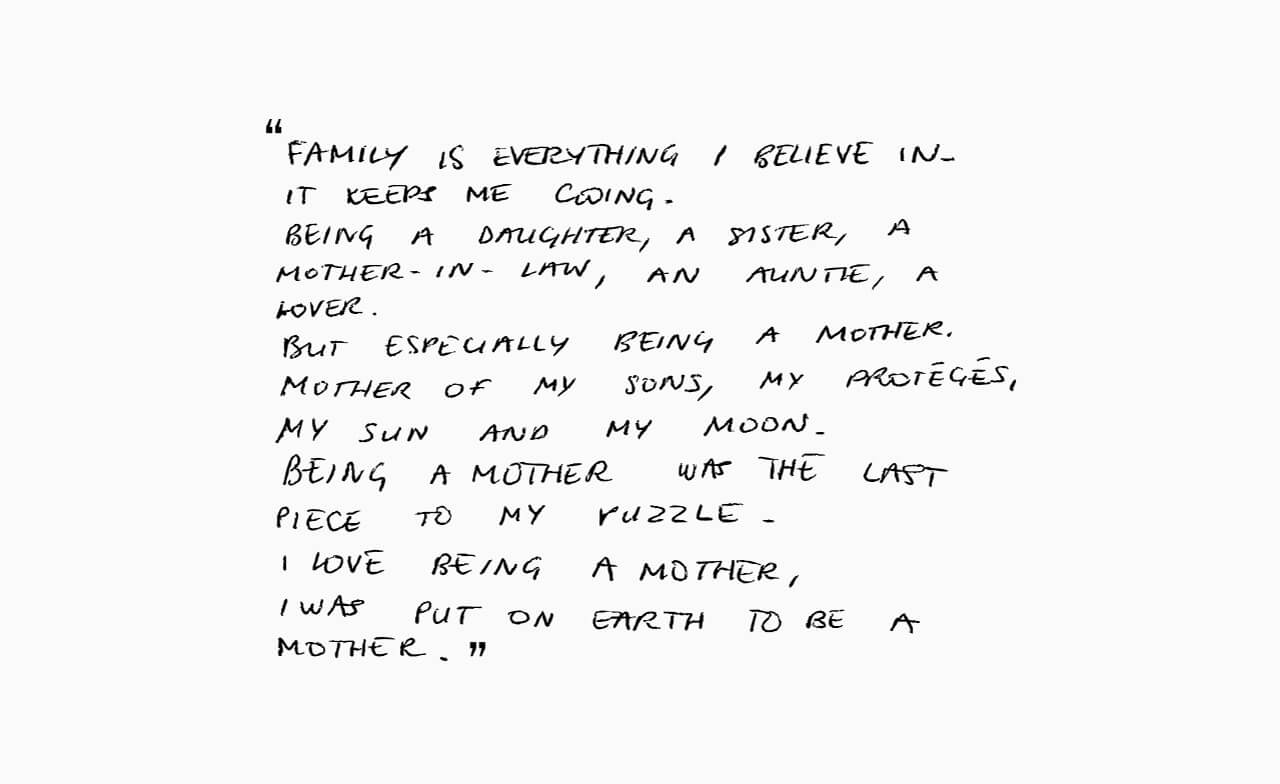 “FAMILY IS EVERYTHING I BELIEVE IN.
IT KEEPS ME GOING.
BEING A DAUGHTER, A SISTER, A
MOTHER-IN-LAW, AN AUNTIE, A
LOVER.
BUT ESPECIALLY BEING A MOTHER.
MOTHER OF MY SONS, MY PROTÉGÉS,
MY SUN AND MY MOON.
BEING A MOTHER WAS THE LAST
PIECE TO MY PUZZLE.
I LOVE BEING A MOTHER,
I WAS PUT ON EARTH TO BE A
MOTHER.”